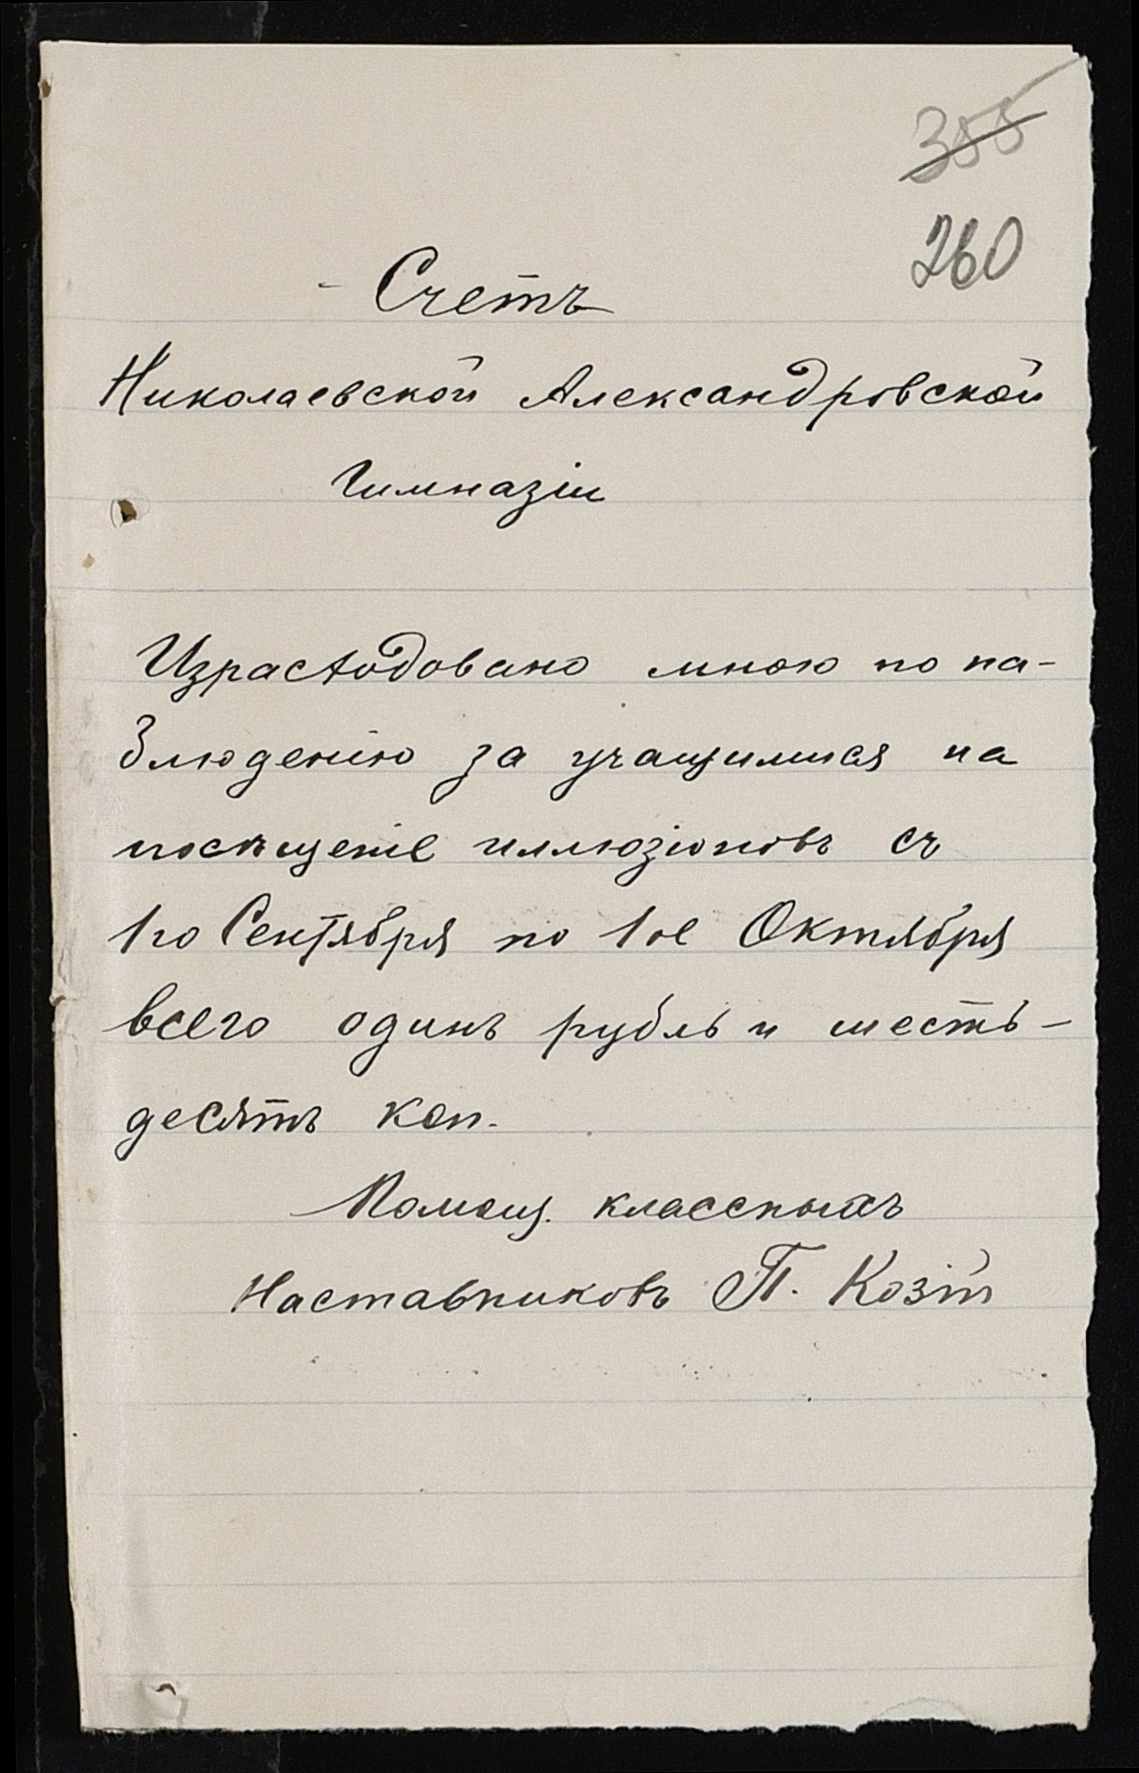 355
260
Счетъ
Николаевской Александровской
Гимназіи
Израсходовано мною по на-
блюденію за учащимися на
посѣщеніе иллюзіоновъ съ
1го Сентября по 1ое Октября
всего одинъ рубль и шесть-
десятъ коп.
Помощ. классныхъ
Наставниковъ П.